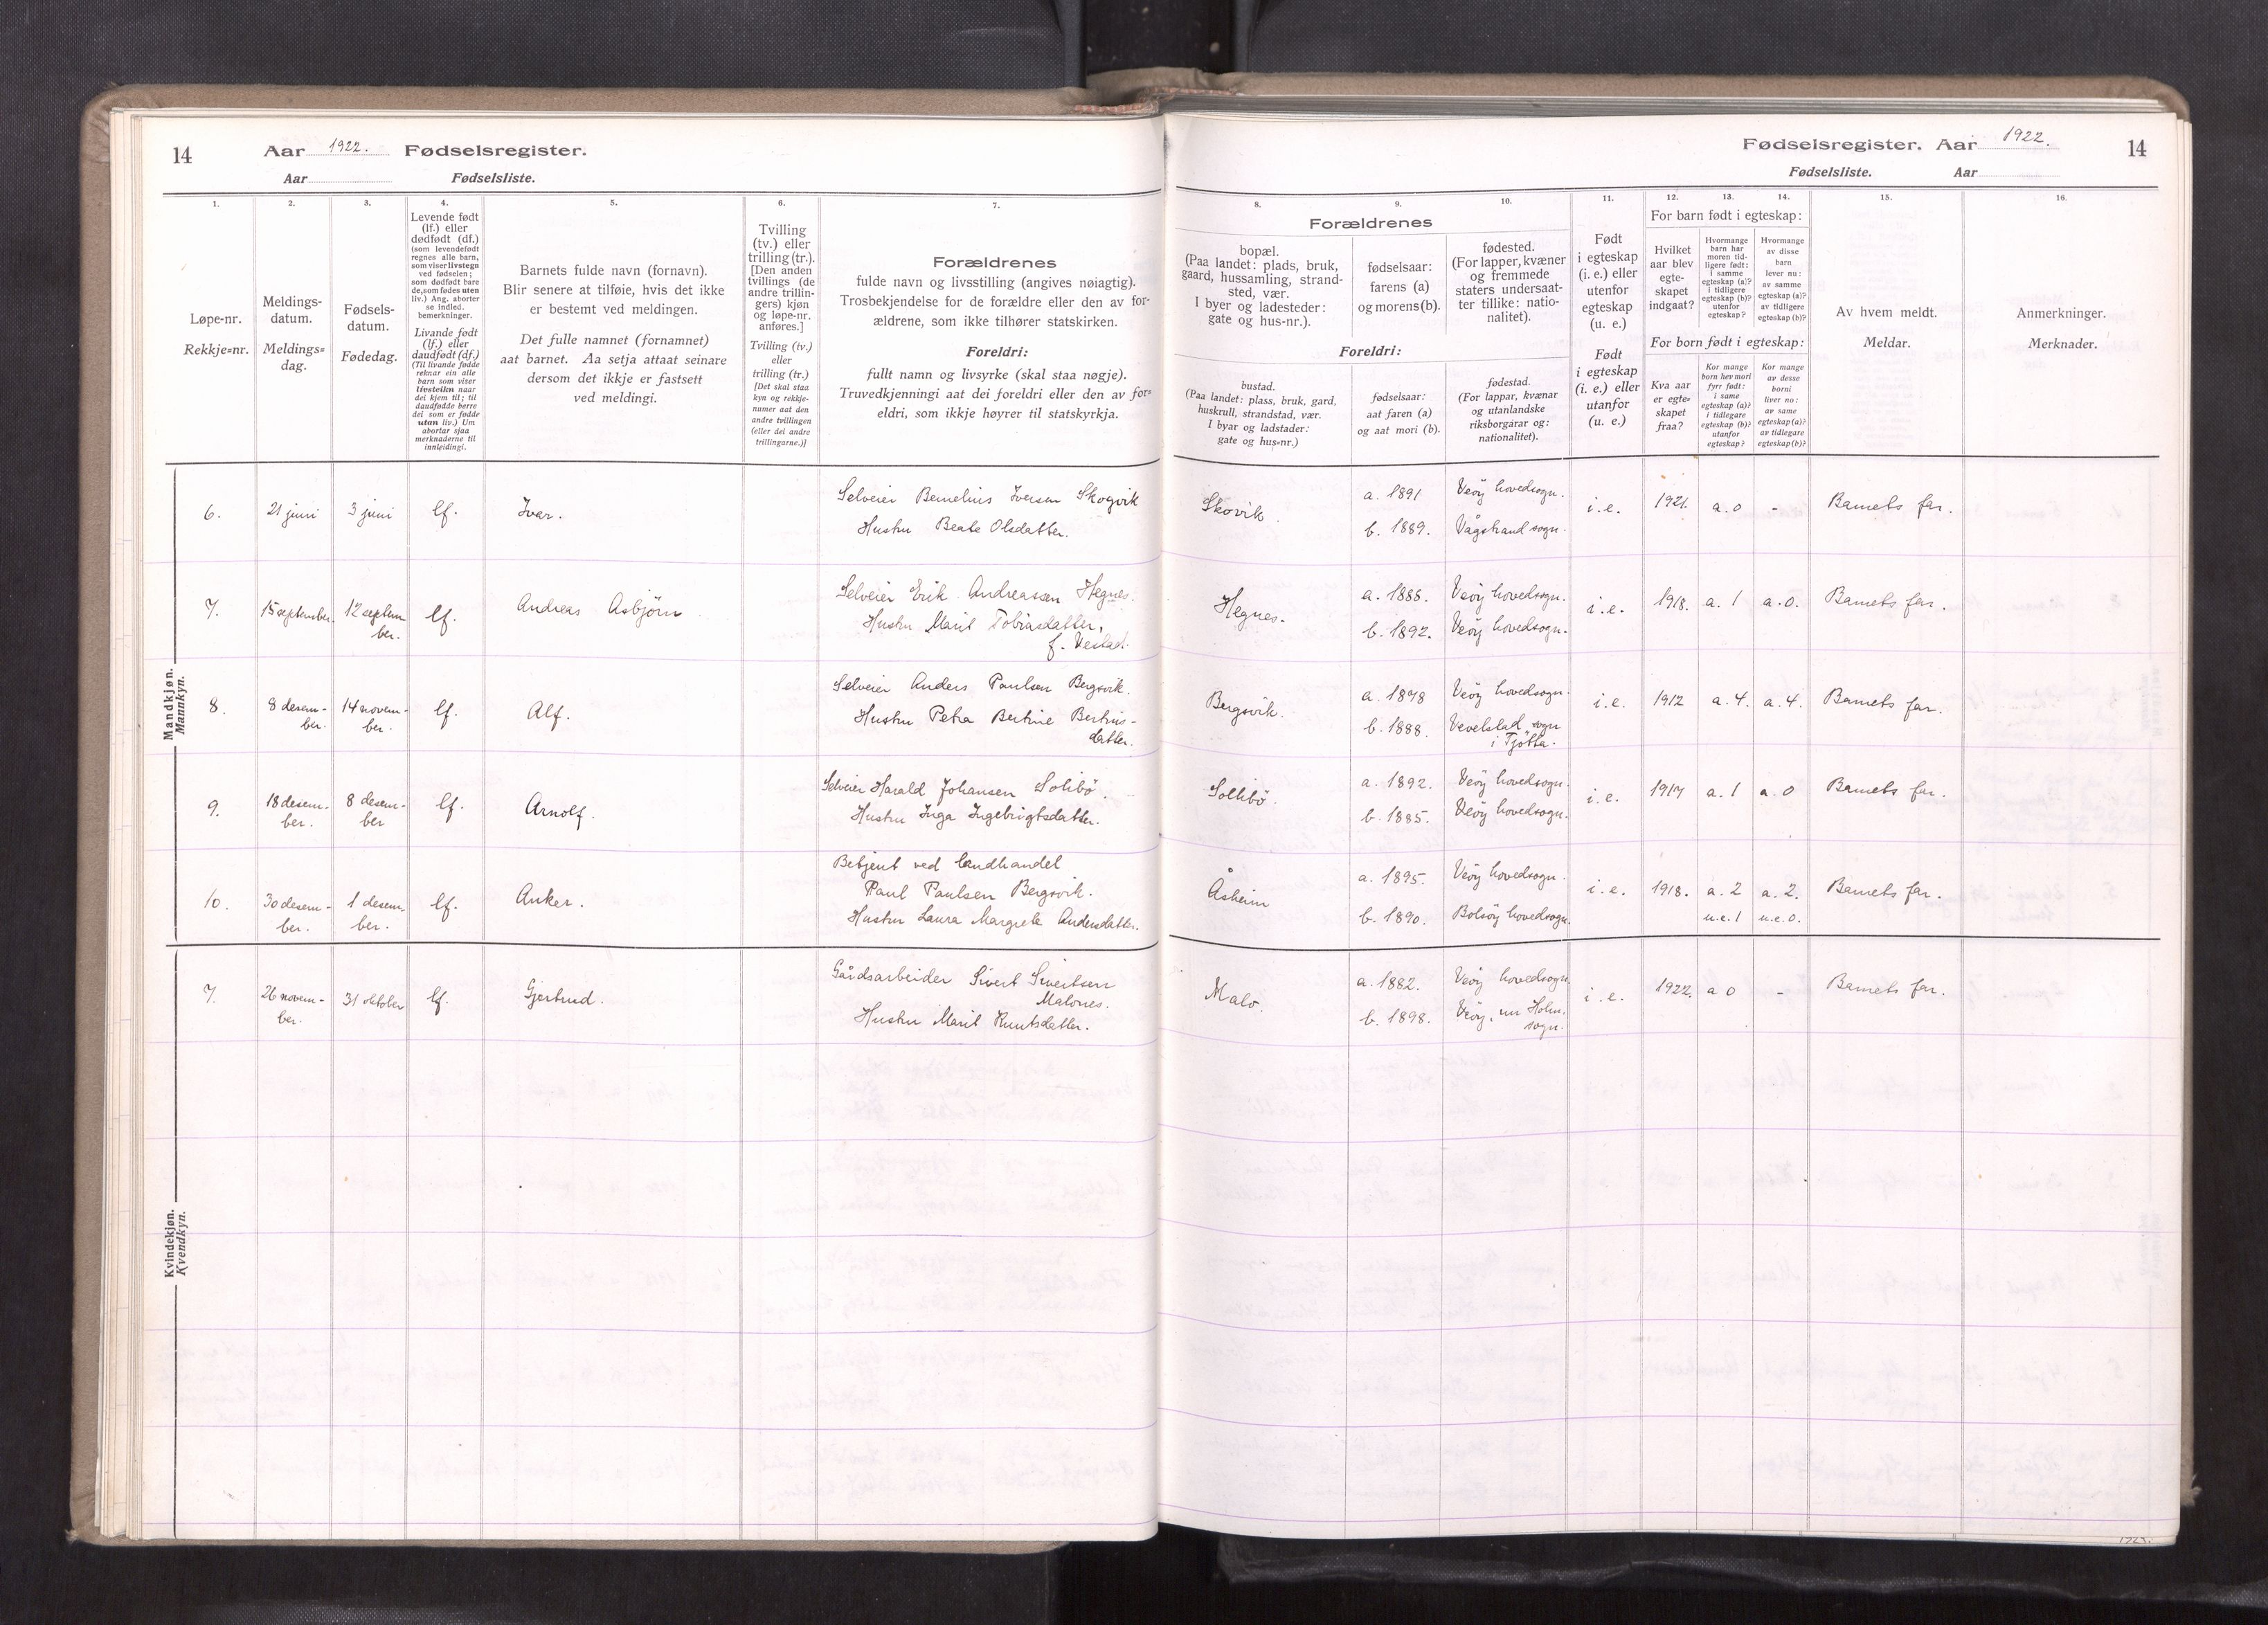 14
Aar 1922. Fødselsregister.
Aar Fødselsliste.
1.
Løpe-nr.
Rekkje=nr.
2.
Meldings-
datum.
Meldings=
dag.
3.
Fødsels-
datum.
Fødedag.
4.
Levende født
(lf.) eller
dødfødt (df.)
(som levendefødt
regnes alle barn,
som viser livstegn
ved fødselen;
som dødfødt bare
de, som fødes uten
liv.) Ang. aborter
se indled.
bemerkninger.
Livande født
(lf.) eller
daudfødt (df.)
(Til livande fødde
reknar ein alle
barn som viser
livsteikn naar
dei kjem til; til
daudfødde berre
dei som er fødde
utan liv.) Um
abortar sjaa
merknaderne til
innleidingi.
5.
Barnets fulde navn (fornavn).
Blir senere at tilføie, hvis det ikke
er bestemt ved meldingen.
Det fulle namnet (fornamnet)
aat barnet. Aa setja attaat seinare
dersom det ikkje er fastsett
ved meldingi.
6.
Tvilling
(tv.) eller
trilling (tr.).
[Den anden
tvillings (de
andre trillin-
gers) kjøn
og løpe-nr.
anføres.]
Tvilling (tv.)
eller
trilling (tr.)
[Det skal staa
kyn og rekkje-
numer aat den
andre tvillingen
(eller dei andre
trillingarne.)]
7.
Forældrenes
fulde navn og livsstilling (angives nøiagtig).
Trosbekjendelse for de forældre eller den av for-
ældrene, som ikke tilhører statskirken.
Foreldri:
fullt namn og livsyrke (skal staa nøgje).
Truvedkjenningi aat dei foreldri eller den av for=
eldri, som ikkje høyrer til statskyrkja.
Mandkjøn.
Mannkyn.
6. 21 juni 3 juni lf. Ivar. Selveier Bernelius Iversen Skogvik
Hustru Beate Olsdatter.
7. 15 september. 12 septem
ber. lf. Andreas Asbjörn Selveier Erik Andreassen Hegnes.
Hustru Marit Tobiasdatter,
f. Vestad.
8. 8 desem-
ber. 14 novem-
ber. lf. Alf. Selveier Anders Paulsen Bergsvik.
Hustru Petra Bertine Bertins-
datter.
9. 18 desem-
ber. 8 desem-
ber lf. Arnolf. Selveier Harald Johansen Solibö.
Hustru Inga Ingebrigtsdatter.
10. 30 desem-
ber. 1 desem-
ber. lf. Anker. Betjent ved landhandel
Paul Paulsen Bergsvik.
Hustru Laura Margrete Andersdatter.
Kvindekjøn.
Kvendkyn.
7. 26 novem-
ber. 31 oktober lf. Gjertrud. Gårdsarbeider Sivert Sivertsen
Malones.
Hustru Marit Knutsdatter.
Fødselsregister. Aar 1922. 14
Fødselsliste. Aar
8.
Forældrenes
bopæl.
(Paa landet: plads, bruk,
gaard, hussamling, strand-
sted, vær.
I byer og ladesteder:
gate og hus-nr.).
Foreldri:
bustad.
(Paa landet: plass, bruk, gard,
huskrull, strandstad, vær.
I byar og ladstader:
gate og hus=nr.)
9.
fødselsaar:
farens (a)
og morens (b).
fødselsaar:
aat faren (a)
og aat mori (b).
10.
fødested.
(For lapper, kvæner
og fremmede
staters undersaat-
ter tillike: natio-
nalitet).
fødestad.
(For lappar, kvænar
og utanlandske
riksborgarar og:
nationalitet).
11.
Født
i egteskap
(i. e.) eller
utenfor
egteskap
(u. e.)
Født
i egteskap
(i. e.) eller
utanfor
(u. e.)
12. 13. 14.
For barn født i egteskap:
Hvilket
aar blev
egte-
skapet
indgaat?
Hvormange
barn har
moren tid-
ligere født:
i samme
egteskap (a)?
i tidligere
egteskap (b)?
utenfor
egteskap?
Hvormange
av disse
barn
lever nu:
av samme
egteskap (a)?
av tidligere
egteskap (b)?
For born født i egteskap:
Kva aar
er egte=
skapet
fraa?
Kor mange
born hev mori
fyrr født:
i same
egteskap (a)?
i tidlegare
egteskap (b)?
utanfor
egteskap?
Kor mange
av desse
borni
liver no:
av same
egteskap (a)?
av tidlegare
egteskap (b)?
15.
Av hvem meldt.
Meldar.
16.
Anmerkninger.
Merknader.
Skovik. a. 1891 Veöy hovedsogn. i.e. 1921. a. 0 - Barnets far.
b. 1889. Vågstrand sogn.
Hegnes. a. 1888. Veöy hovedsogn. i.e. 1918. a. 1 a. 0. Barnets far.
b. 1892. Veöy hovedsogn.
Bergsvik. a. 1878 Veöy hovedsogn. i.e. 1912 a. 4. a. 4. Barnets far.
b. 1888. Vevelstad sogn
i Tjötta.
Sollibö. a. 1892. Veöy hovedsogn. i.e. 1917 a. 1 a. 0 Barnets far.
b. 1885. Veöy hovedsogn.
Åsheim a. 1895. Veöy hovedsogn. i.e. 1918. a. 2 a. 2. Barnets far.
b. 1890. Bolsöy hovedsogn. u.e. 1 u.e. 0.
Malo. a. 1882. Veöy hovedsogn. i.e. 1922. a 0 - Barnets far.
b. 1898. Veöy, nu Holm
sogn.